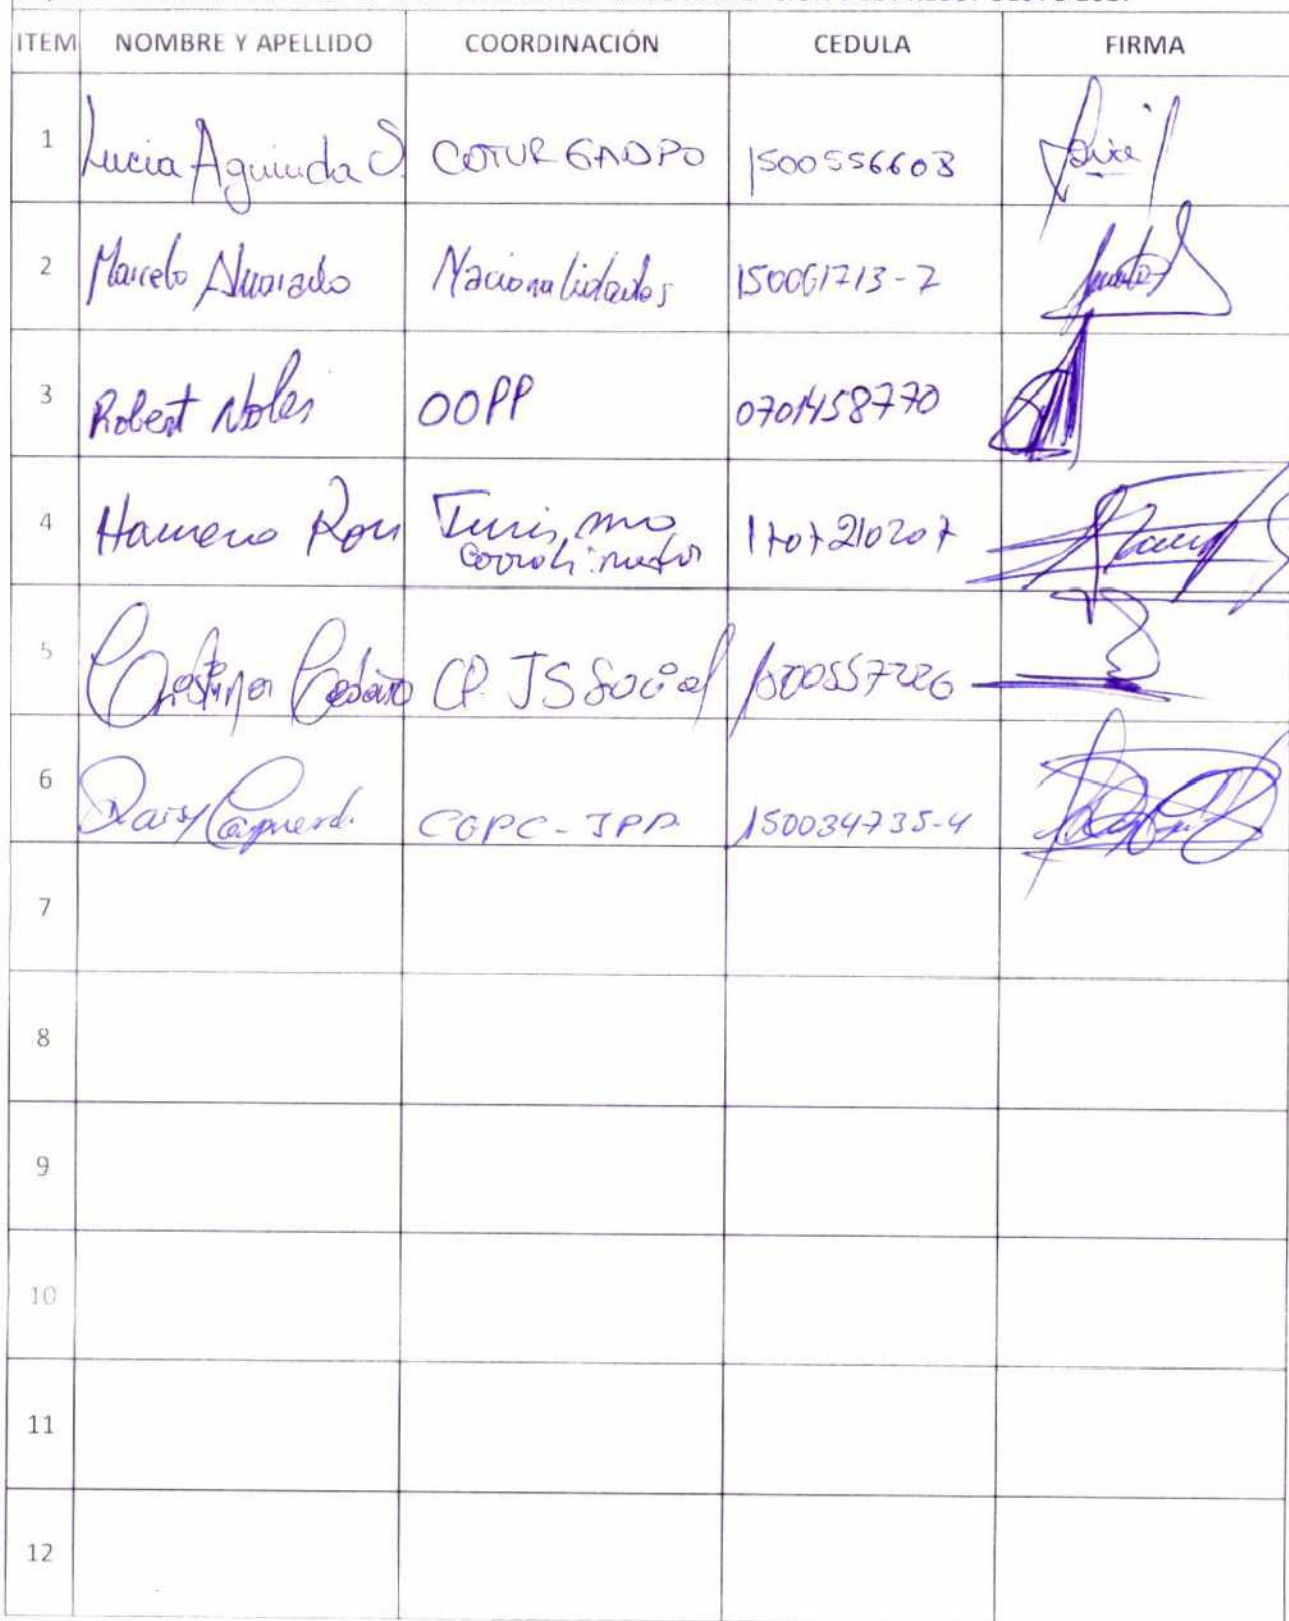 ITEM NOMBRE Y APELLIDO COORDINACIÓN CEDULA FIRMA
1 Lucia Aguinda S. COTUR GADPO 1500556603
2 Marcelo Alvarado Nacionalidades 150061713-7
3 Robert Noles OOPP 0701458770
4 Turismo 1707210207
Coordinador
5 CP. JS Social 1500557226
6 Daisy CGPC-JPP. 150034735-4
7
8
9
10
11
12